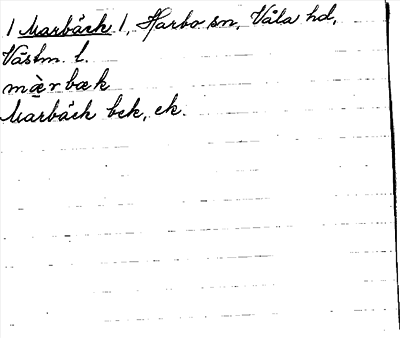 1 Marbäck 1, Harbo sn, Våla hd,
Västm. l.
mæ̀rbæk
Marbäck bek, ek.